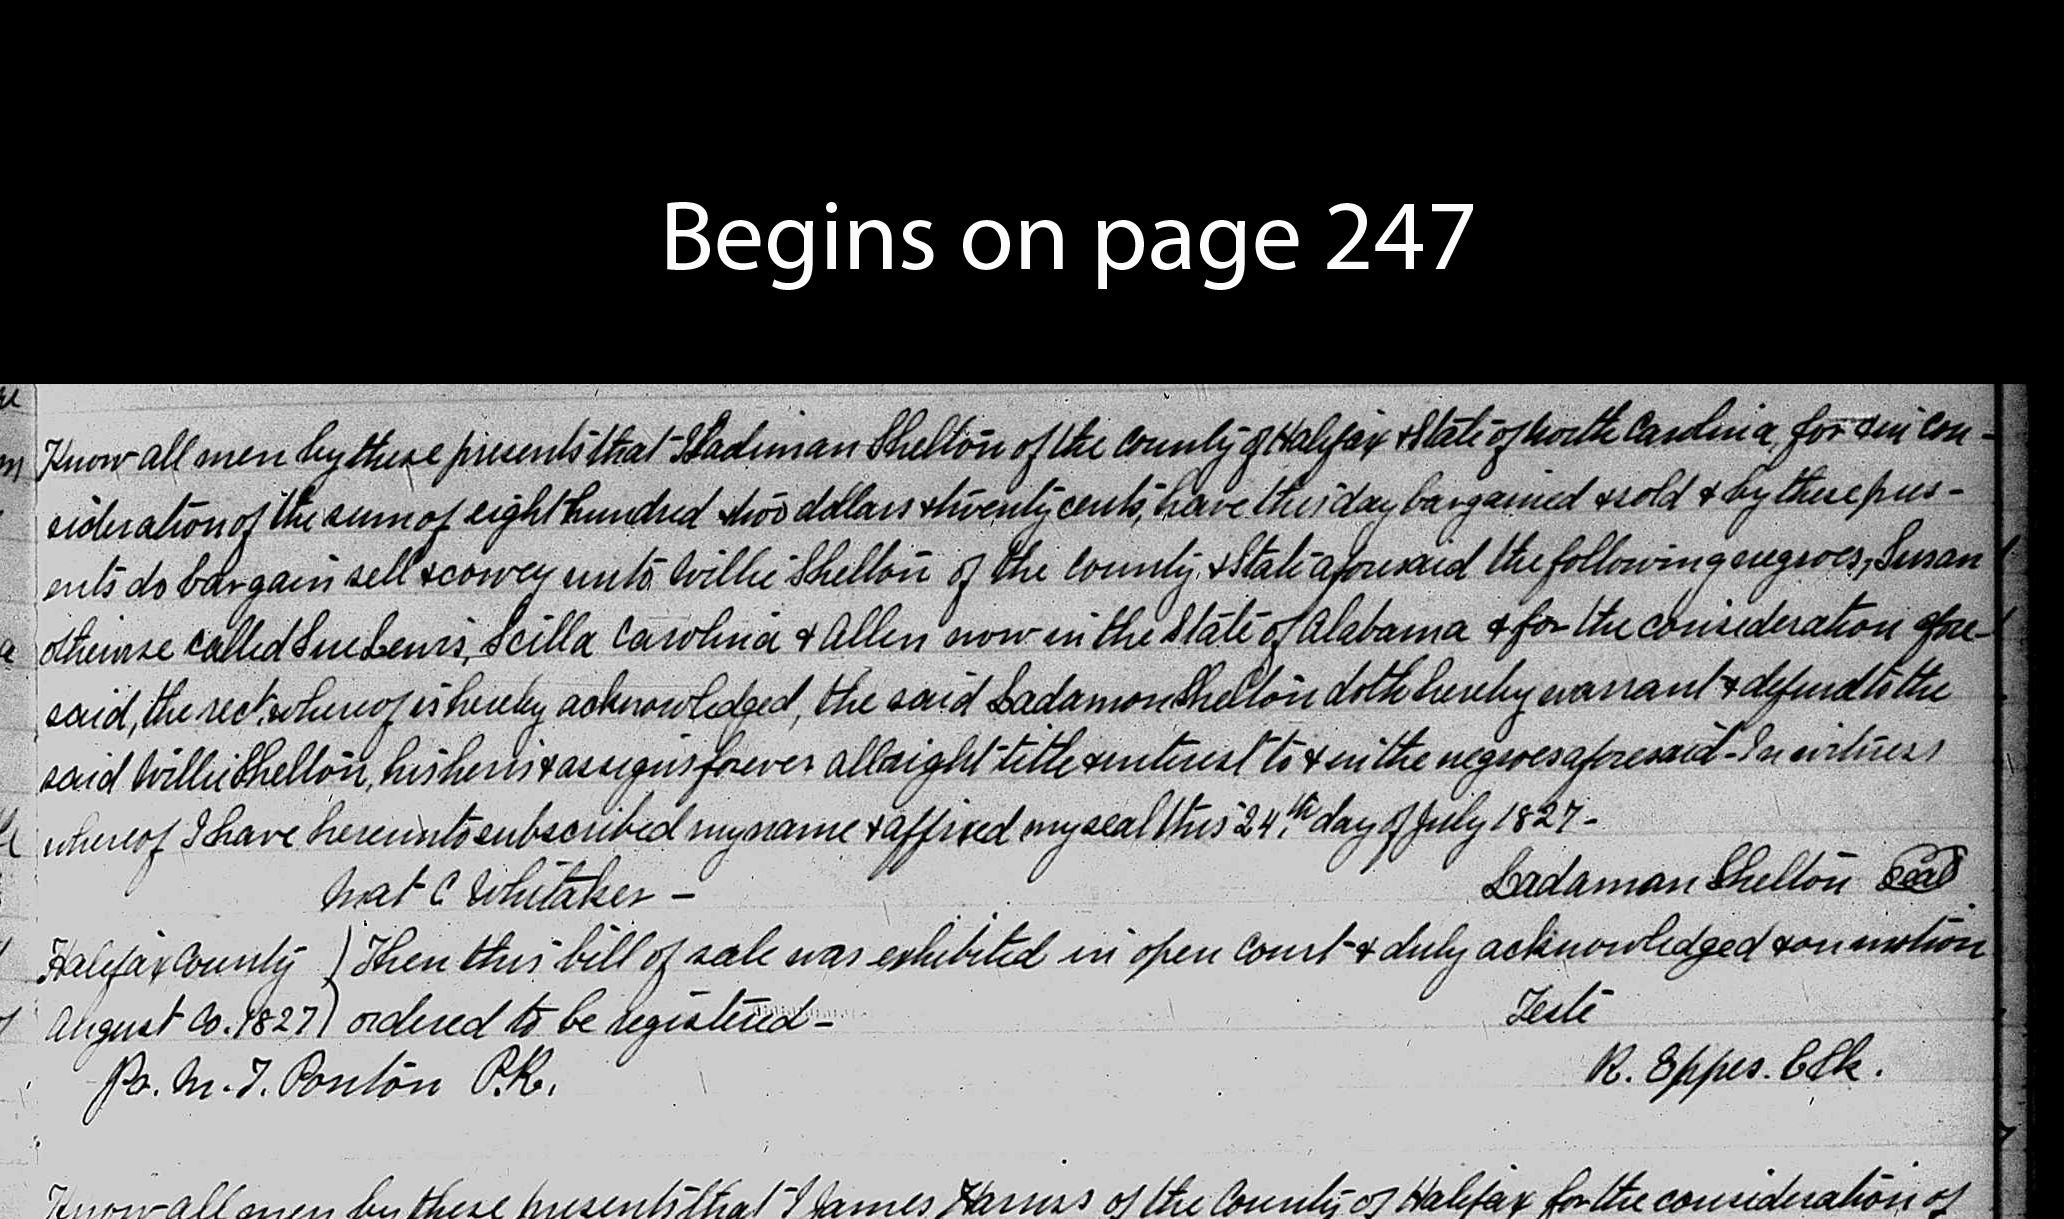 Begins on page 247
Know all men by these presents that I Ladiman Shelton of the County of Halifax & State of North Carolina, for & in con-
sideration of the sum of eight hundred & two dollars & twenty cents, have this day bargained & sold & by these pres-
ents do bargain sell & convey unto Willie Shelton of the County & State aforesaid the following negroes, Susan
otherwise called Sue Lewis, Scilla Carolina & Allen now in the State of Alabama & for the consideration afore-
said, the rect. whereof is hereby acknowledged, the said Ladamon Shelton doth hereby warrant & defend to the
said Willie Shelton, his heirs & assigns forever all right title & interest to & in the negroes aforesaid - In witness
whereof I have hereunto subscribed my name & affixed my seal this 24.th day of July 1827 -
Nat C Whitaker - Ladaman Shelton Seal
Halifax County ) Then this bill of sale was exhibited in open Court & duly acknowledged & on motion
August Co. 1827 ) ordered to be registered - Teste
Po. M. T. Ponton P.R. R. Eppes. Clk.
Know all men by these presents that I James Harriss of the County of Halifax for the consideration of